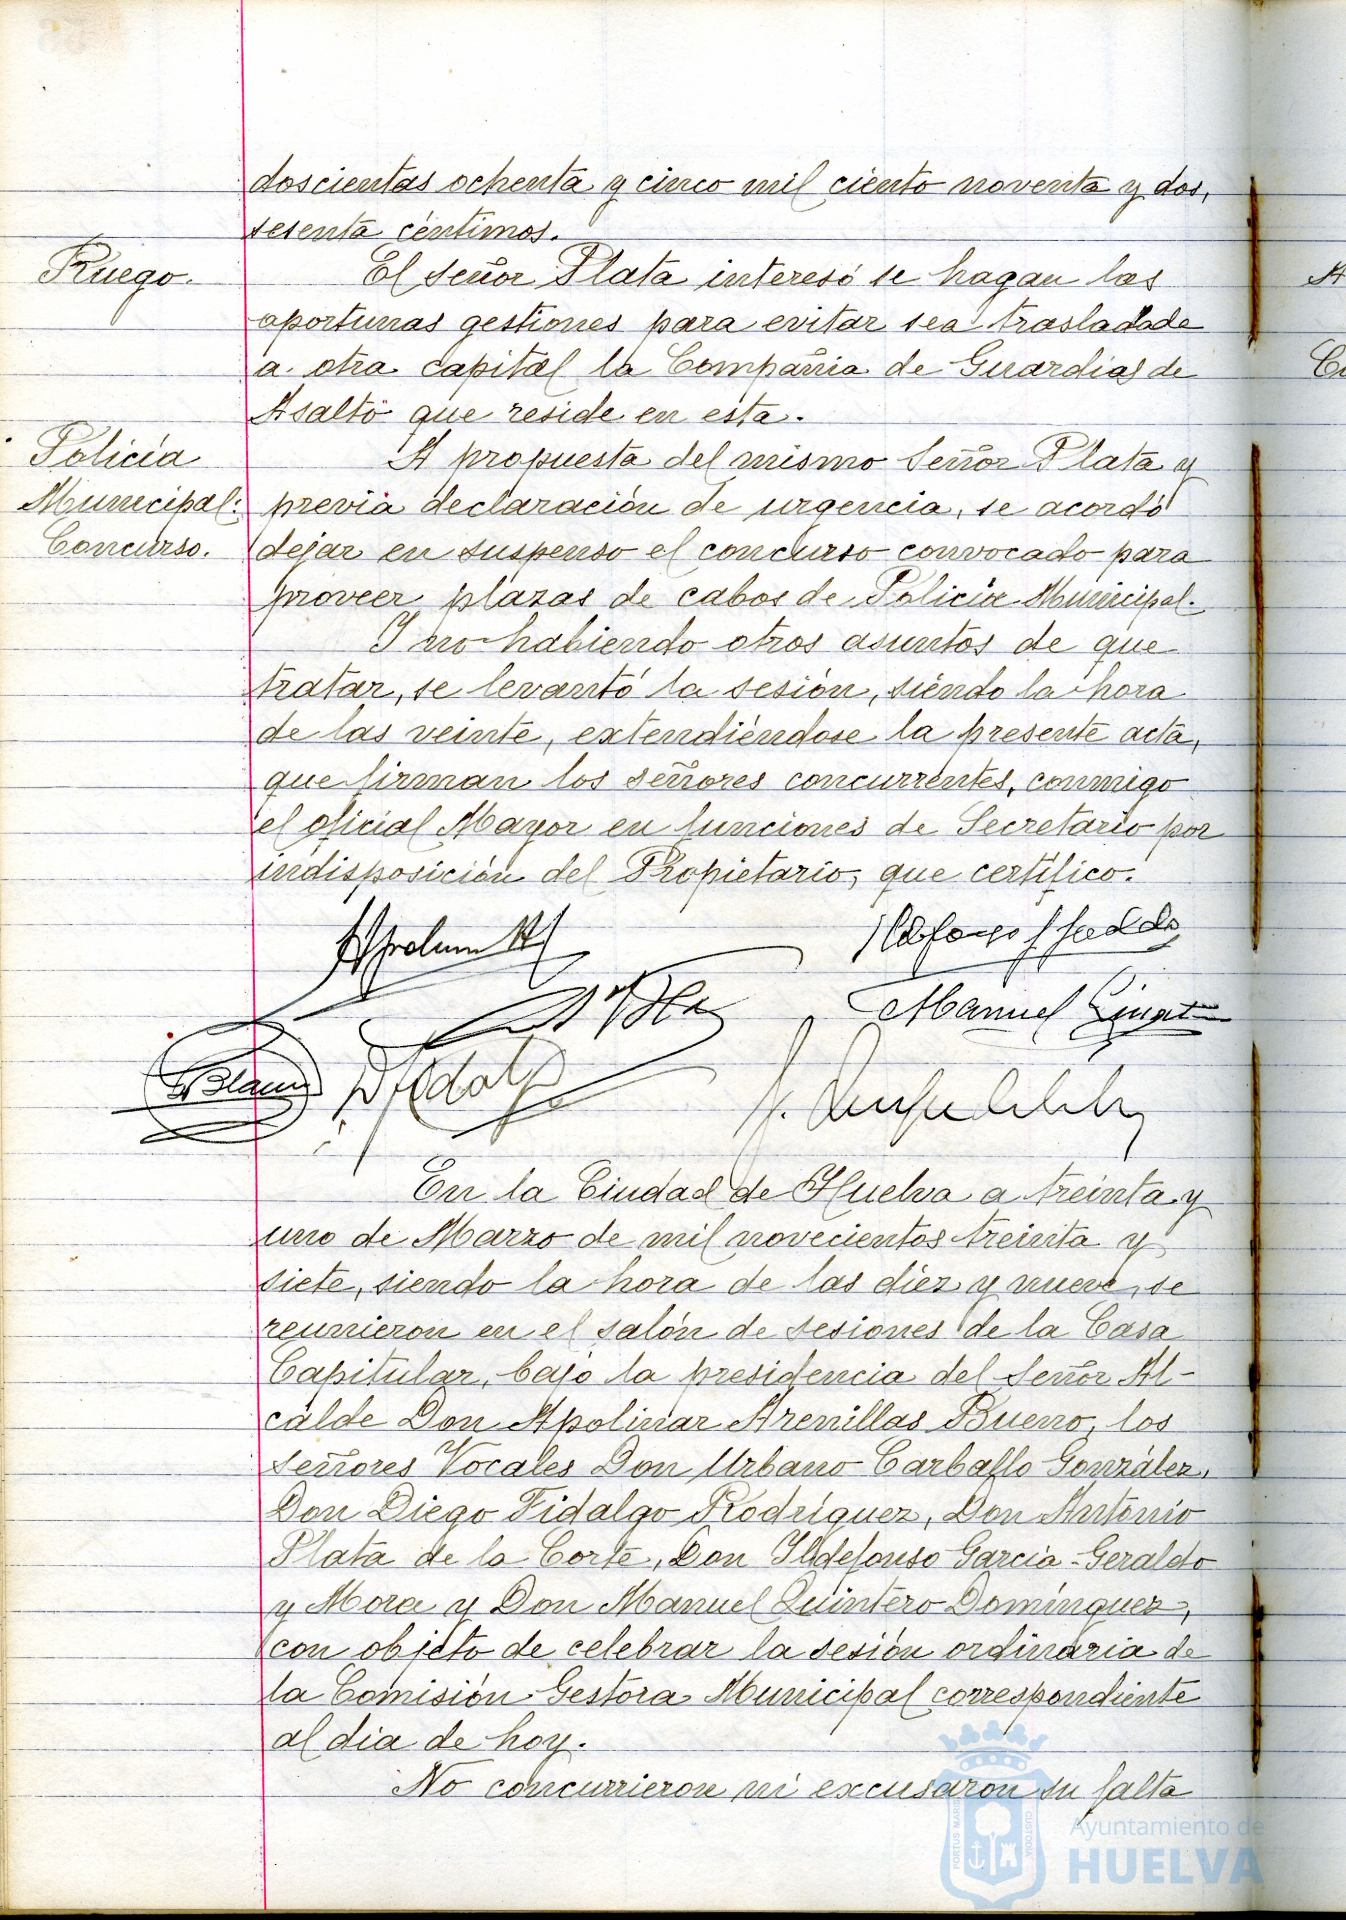 doscientas ochenta y cinco mil ciento noventa y dos,
sesenta céntimos.
Ruego.
El señor Plata interesó se hagan las
oportunas gestiones para evitar sea trasladade
a otra capital la Compañia de Guardias de
Asalto que reside en esta.
Policía
Municipal:
Concurso.
A propuesta del mismo Señor Plata y
previa declaración de urgencia, se acordó
dejar en suspenso el concurso convocado para
proveer plazas de cabos de Policia Municipal.
Y no habiendo otros asuntos de que
tratar, se levantó la sesión, siéndo la hora
de las veinte, extendiéndose la presente acta,
que firman los señores concurrentes, conmigo
el oficial Mayor en funciones de Secretario por
indisposición del Propietario, que certífico.
Manuel
Blanco
En la Ciudad de Huelva a treinta y
uno de Marzo de mil novecientos treinta y
siete, siendo la hora de las diéz y nueve, se
reunieron en el salón de sesiones de la Casa
Capitular, bajo la presidencia del Señor Al-
calde Don Apolinar Arenillas Bueno, los
señores Vocales Don Urbano Carballo González,
Don Diego Fidalgo Rodríguez, Don Antonio
Plata de la Corte, Don Ildefonso Garcia-Geraldo
y Mora y Don Manuel Quintero Domínguez,
con objeto de celebrar la sesión ordinaria de
la Comisión Gestora Municipal correspondiente
al dia de hoy.
No concurrieron ni excusaron su falta
Ayuntamiento de
HUELVA